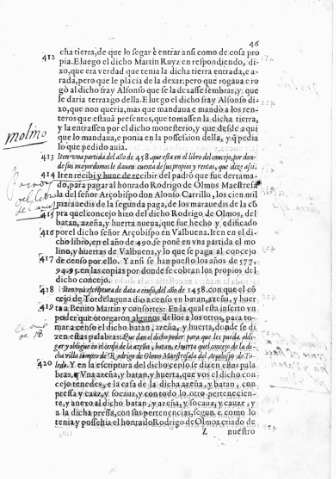 46
cha tierra, de que lo segar è entrar ansi como de cosa pro
412 pia. E luego el dicho Martin Ruyz en respondiendo, di-
xo, que era verdad que tenia la dicha tierra entrada, e a-
rada, pero que le placia de la dexar: pero que rogaua e ro
gò al dicho fray Alfonso que se la dexasse sembrar, y que
le daria terrazgo della. E luego el dicho fray Alfonso di-
xo, que non queria, mas que mandaua e mandò a los ren-
teros que estauã presentes, que tomassen la dicha tierra,
y la entrassen por el dicho monesterio, y que desde aqui
que lo mandaua, e ponia en la possession della, y q̃ pedia
lo que pedido auia.
molino
413 Iten vna partida del año de 458. que esta en el libro del concejo, por don-
de sus mayordomos le dauan cuenta de sus propios y rentas, que dize assi.
414 Iten recibi y huue de recibir del padrõ que fue derrama-
do, para pagar al honrado Rodrigo de Olmos Maestresala
del señor Arçobispo don Alonso Carrillo, los cien mil
marauedis de la segunda paga, de los marauedis de la cõ
415 pra quel concejo hizo del dicho Rodrigo de Olmos, del
batan, azeña, y huerta nueua, que fue hecho y edificado
416 por el dicho señor Arçobispo en Valbuena. Iten en el di-
cho libro, en el año de 490. se ponẽ en vna partida el mo
lino, y huertas de Valbuena, y lo que se paga al concejo
417 de censo por ello. Y ansi se han puesto los años de 577.
94. 95. en las copias por donde se cobran los propios del
dicho concejo.
418 Iten vna escriptura de data a censo, del año de 1458. con que el cõ
cejo de Tordelaguna dio a censo vn batan, azeña, y huer
419 ta a Benito Martin y consortes: En la qual esta inserto vn
poder que otorgaron algunos dellos a los otros, para to-
mar a censo el dicho batan, azeña, y huerta, donde se di
zen estas palabras: Que dan el dicho poder: para que les pueda obli-
gar y obligue en el censo de la azeña, batan, e huerta quel concejo de la di-
cha villa compro de Rodrigo de Olmos Maestresala del Arçobispo de To-
420 ledo. Y en la escriptura del dicho censo se dizen estas pala
bras, Vna azeña, y batan, y huerta, que vos el dicho con
cejo tenedes, e la casa de la dicha azeña, y batan, con
pressa y cauz, y socauz, y con todo lo otro perteneciente
te, y anexo al dicho batan, y azeña, y socauz, y cauze, y
a la dicha pressa, con sus pertenencias, segun, e como lo
tenia, y posseia el honrado Rodrigo de Olmos criado de
Z nuestro